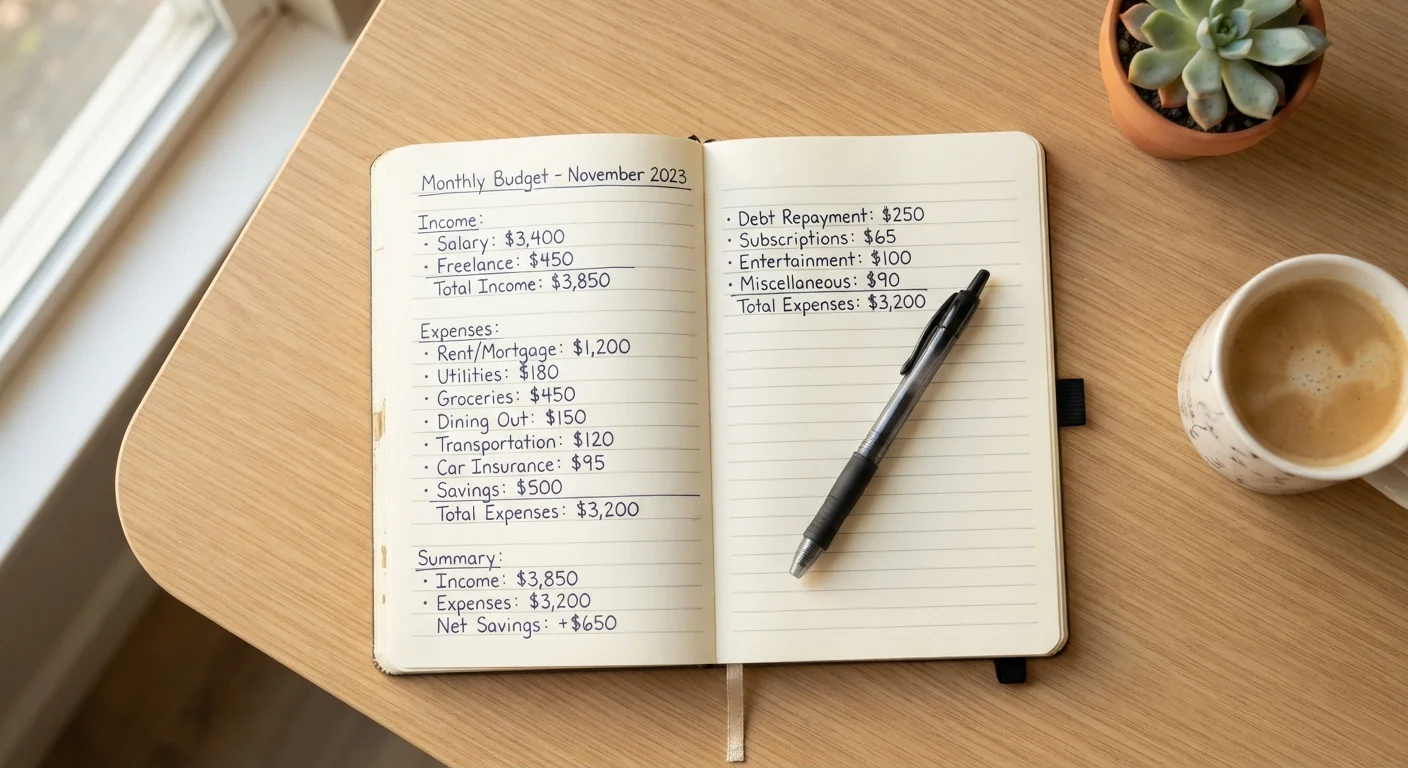 Monthly Budget - November 2023
Income:
• Salary: $3,400
• Freelance: $450
Total Income: $3,850
Expenses:
• Rent/Mortgage: $1,200
• Utilities: $180
• Groceries: $450
• Dining Out: $150
• Transportation: $120
• Car Insurance: $95
• Savings: $500
Total Expenses: $3,200
Summary:
• Income: $3,850
• Expenses: $3,200
Net Savings: +$650
• Debt Repayment: $250
• Subscriptions: $65
• Entertainment: $100
• Miscellaneous: $90
Total Expenses: $3,200